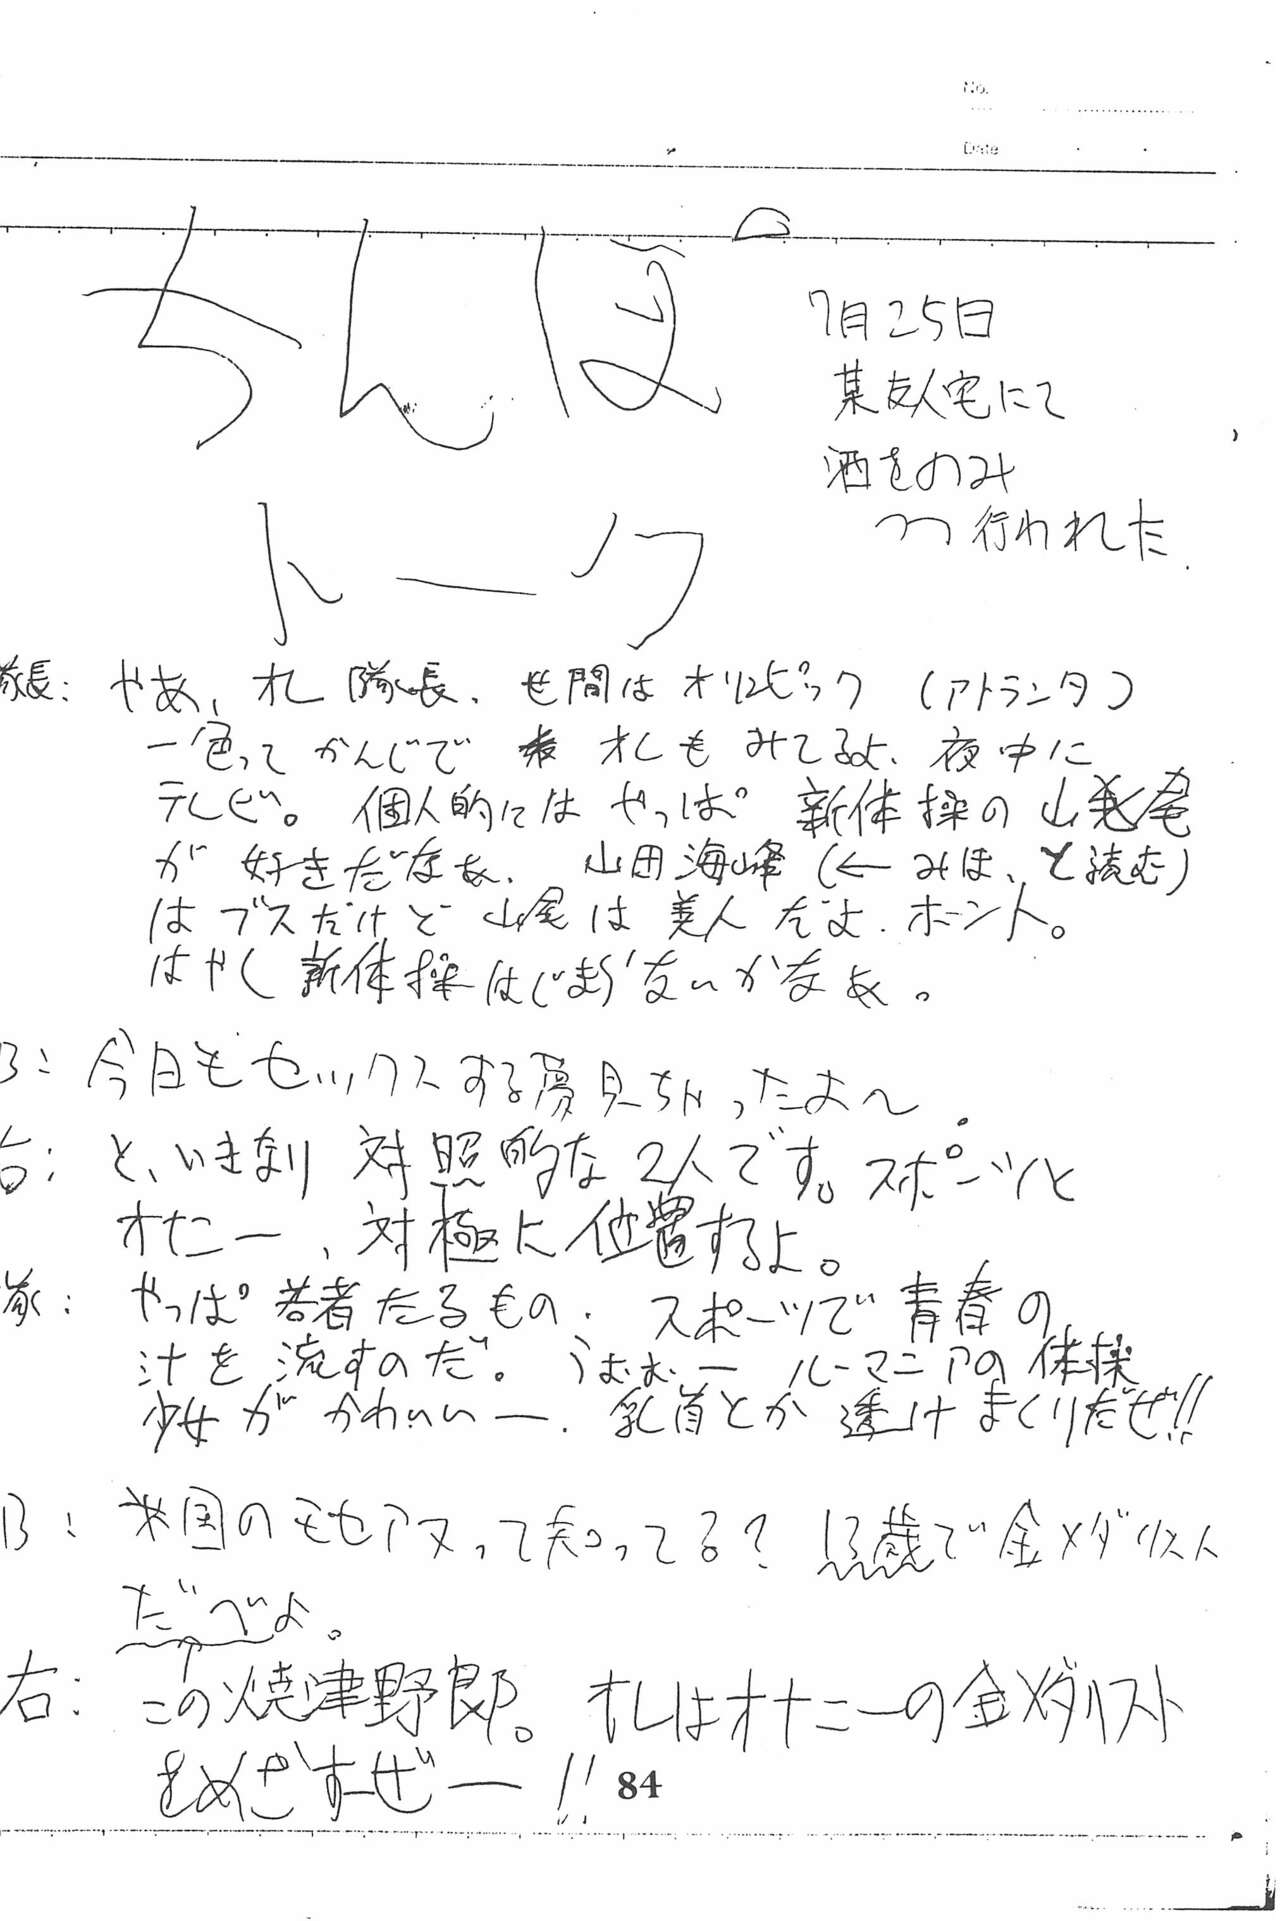 No.
Date
ちんぽ
トーク
7月25日
某友人宅にて
酒をのみ
つつ行われた.
隊長: やあ、オレ隊長、世間はオリンピック (アトランタ)
一色ってかんじで オレもみてるよ、夜中に
テレビ。個人的にはやっぱ新体操の山尾
が好きだなあ、山田海峰(←みほ、と読む)
はブスだけど山尾は美人だよ、ホント。
はやく新体操はじまらないかなぁ。
B: 今日もセックスする夢見ちゃったよ〜。
右: と、いきなり対照的な2人です。スポーツと
オナニー、対極に位置するよ。
隊: やっぱ若者たるもの、スポーツで青春の
汁を流すのだ。
B: 米国のモセアヌって知ってる? 13歳で金メダリスト
だべよ。
右: この焼津野郎。オレはオナニーの金メダリスト
をめざすぜー!!
84